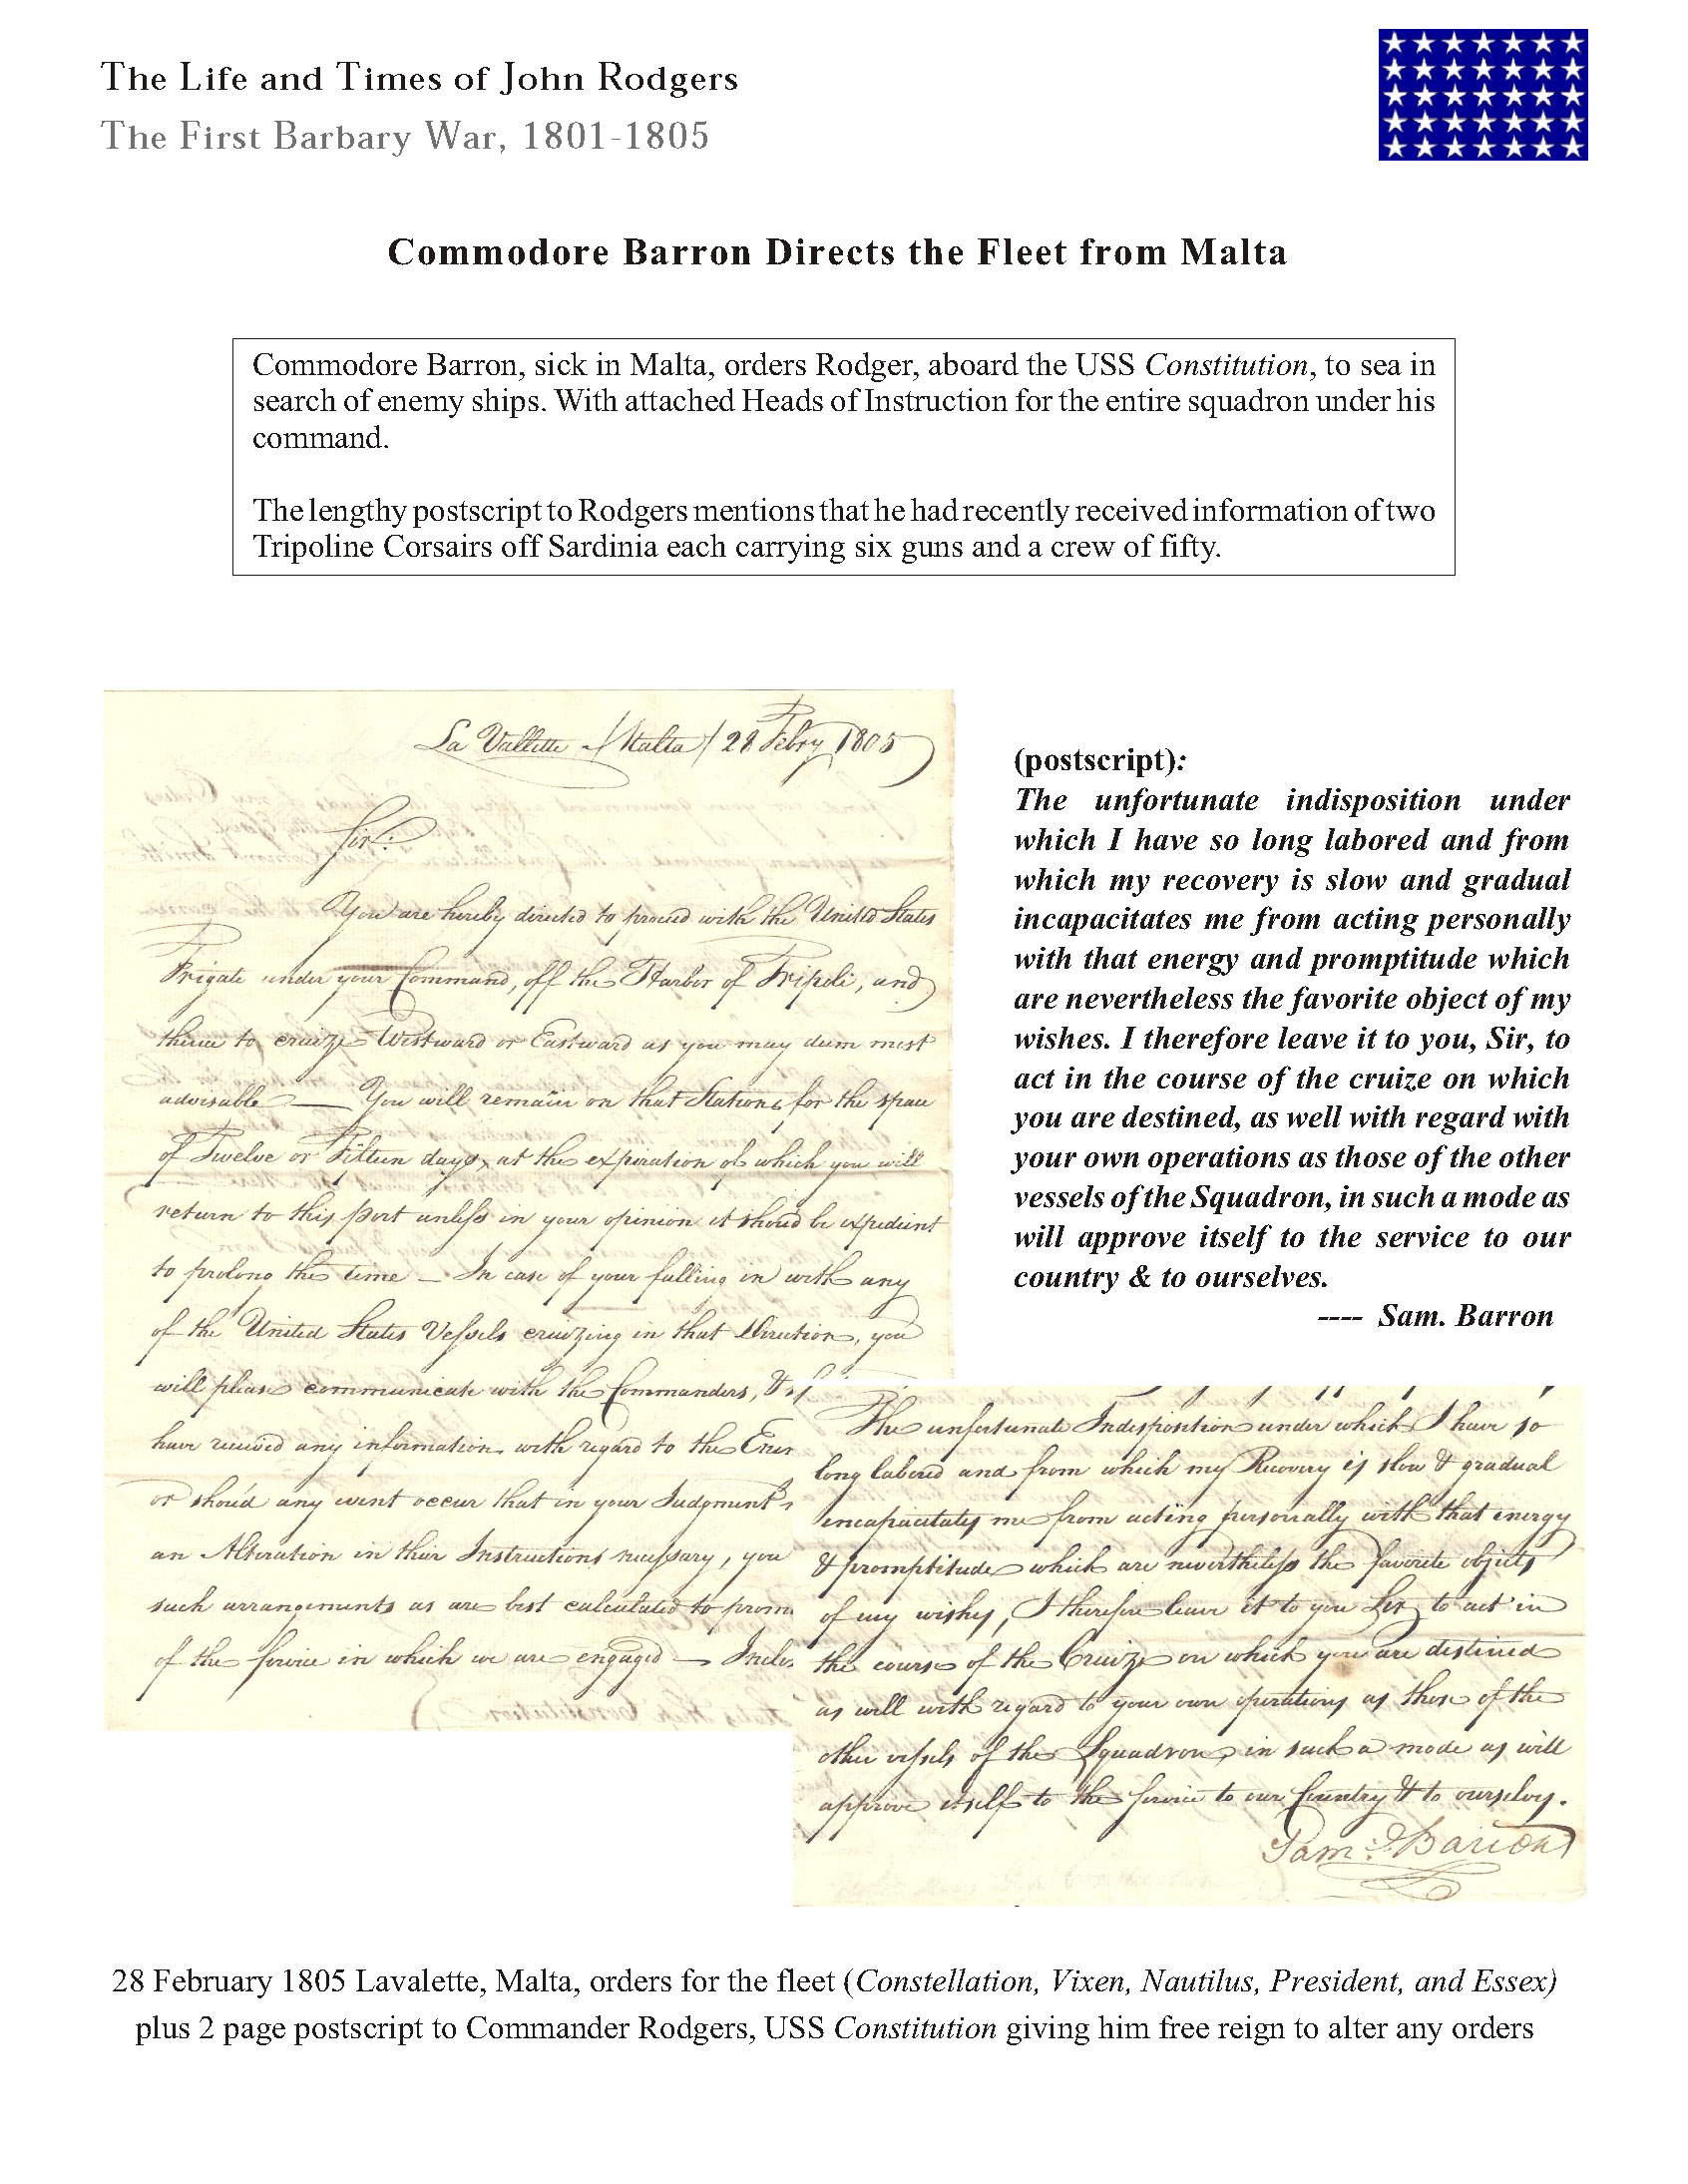 The Life and Times of John Rodgers
The First Barbary War, 1801-1805
Commodore Barron Directs the Fleet from Malta
Commodore Barron, sick in Malta, orders Rodger, aboard the USS Constitution, to sea in
search of enemy ships. With attached Heads of Instruction for the entire squadron under his
command.
The lengthy postscript to Rodgers mentions that he had recently received information of two
Tripoline Corsairs off Sardinia each carrying six guns and a crew of fifty.
La Vallette (Malta) 28 Febry 1805
Sir:
You are hereby directed to proceed with the United States
Frigate under your Command, off the Harbor of Tripoli, and
thence to cruize Westward or Eastward as you may deem most
advisable — You will remain on that Station for the space
of Twelve or Fifteen days, at the expiration of which you will
return to this port unless in your opinion it should be expedient
to prolong the time — In case of your falling in with any
of the United States Vessels cruizing in that Direction, you
will please communicate with the Commanders, &
have received any information with regard to the Ener
or shou'd any event occur that in your Judgment
an Alteration in their Instructions necessary, you
such arrangements as are best calculated to prom
of the Service in which we are engaged — Inclo
(postscript):
The unfortunate indisposition under
which I have so long labored and from
which my recovery is slow and gradual
incapacitates me from acting personally
with that energy and promptitude which
are nevertheless the favorite object of my
wishes. I therefore leave it to you, Sir, to
act in the course of the cruize on which
you are destined, as well with regard with
your own operations as those of the other
vessels of the Squadron, in such a mode as
will approve itself to the service to our
country & to ourselves.
---- Sam. Barron
The unfortunate Indisposition under which I have so
long labored and from which my Recovery is slow & gradual
incapacitates me from acting personally with that energy
& promptitude which are nevertheless the favorite objects
of my wishes, I therefore leave it to you Sir, to act in
the course of the Cruize on which you are destined
as well with regard to your own operations as those of the
other vessels of the Squadron, in such a mode as will
approve itself to the service to our Country & to ourselves.
Sam. Barron
28 February 1805 Lavalette, Malta, orders for the fleet (Constellation, Vixen, Nautilus, President, and Essex)
plus 2 page postscript to Commander Rodgers, USS Constitution giving him free reign to alter any orders